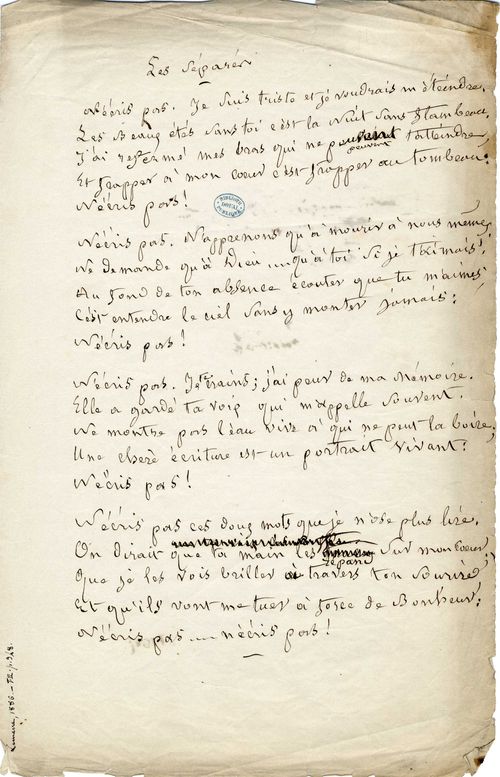 Les Séparés
N'écris pas. Je suis triste et je voudrais m'éteindre.
Les Beaux étés sans toi c'est la nuit sans flambeau,
J'ai refermé mes bras qui ne peuvent t'atteindre,
peuvent
Et frapper à mon cœur c'est frapper au tombeau:
N'écris pas!
BIBLIOTH
DOUAI
PUBLIQUE
N'écris pas. N'apprenons qu'à mourir à nous mêmes,
Ne demande qu'à Dieu... qu'à toi si je t'aimais!
Au fond de ton absence écouter que tu m'aimes,
C'est entendre le ciel sans y monter jamais:
N'écris pas!
N'écris pas. Je te crains; j'ai peur de ma mémoire.
Elle a gardé ta voix qui m'appelle souvent.
Ne montre pas l'eau vive à qui ne peut la boire;
Une chère écriture est un portrait vivant:
N'écris pas!
N'écris pas ces doux mots que je n'ose plus lire.
On dirait que ta main les
répand
sur mon cœur,
Que je les vois briller à travers ton sourire
Et qu'ils vont me tuer à force de Bonheur:
N'écris pas... n'écris pas!